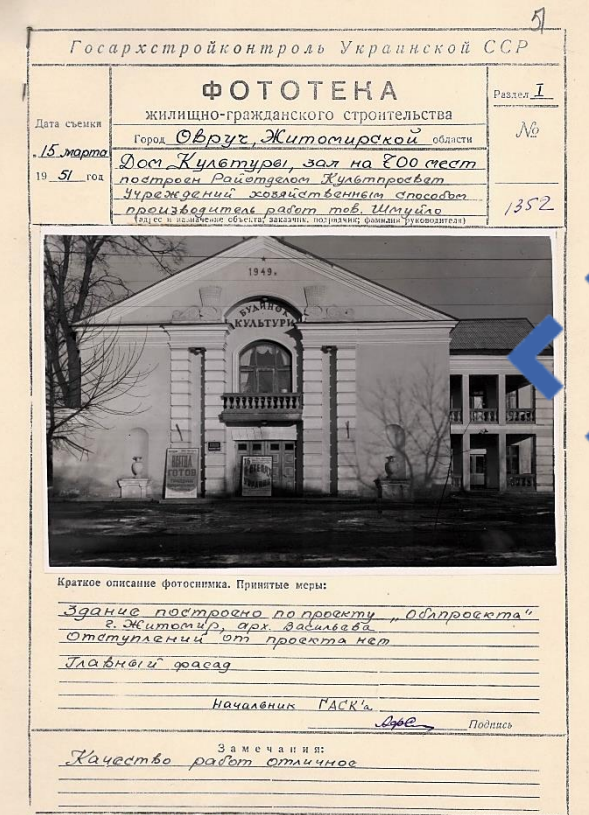 51
Госархстройконтроль Украинской ССР
ФОТОТЕКА
жилищно-гражданского строительства
Раздел I
Дата съемки
Город Овруч, Житомирской области
№
15 марта
Дом Культуры, зал на 700 мест
1951 год
построен Райотделом Культпросвет
Учреждений хозяйственным способом
производитель работ тов. Шмуйло
1352
(адрес и назначение объекта, заказчик, подрядчик; фамилии руководителя)
1949.
БУДИНОК
КУЛЬТУРИ
ВСЕГДА
ГОТОВ
Краткое описание фотоснимка. Принятые меры:
Здание построено по проекту „Облпроекта"
г. Житомир, арх. Васильева
Отступлений от проекта нет
Главный фасад
Начальник ГАСК'а
Подпись
Замечания:
Качество работ отличное